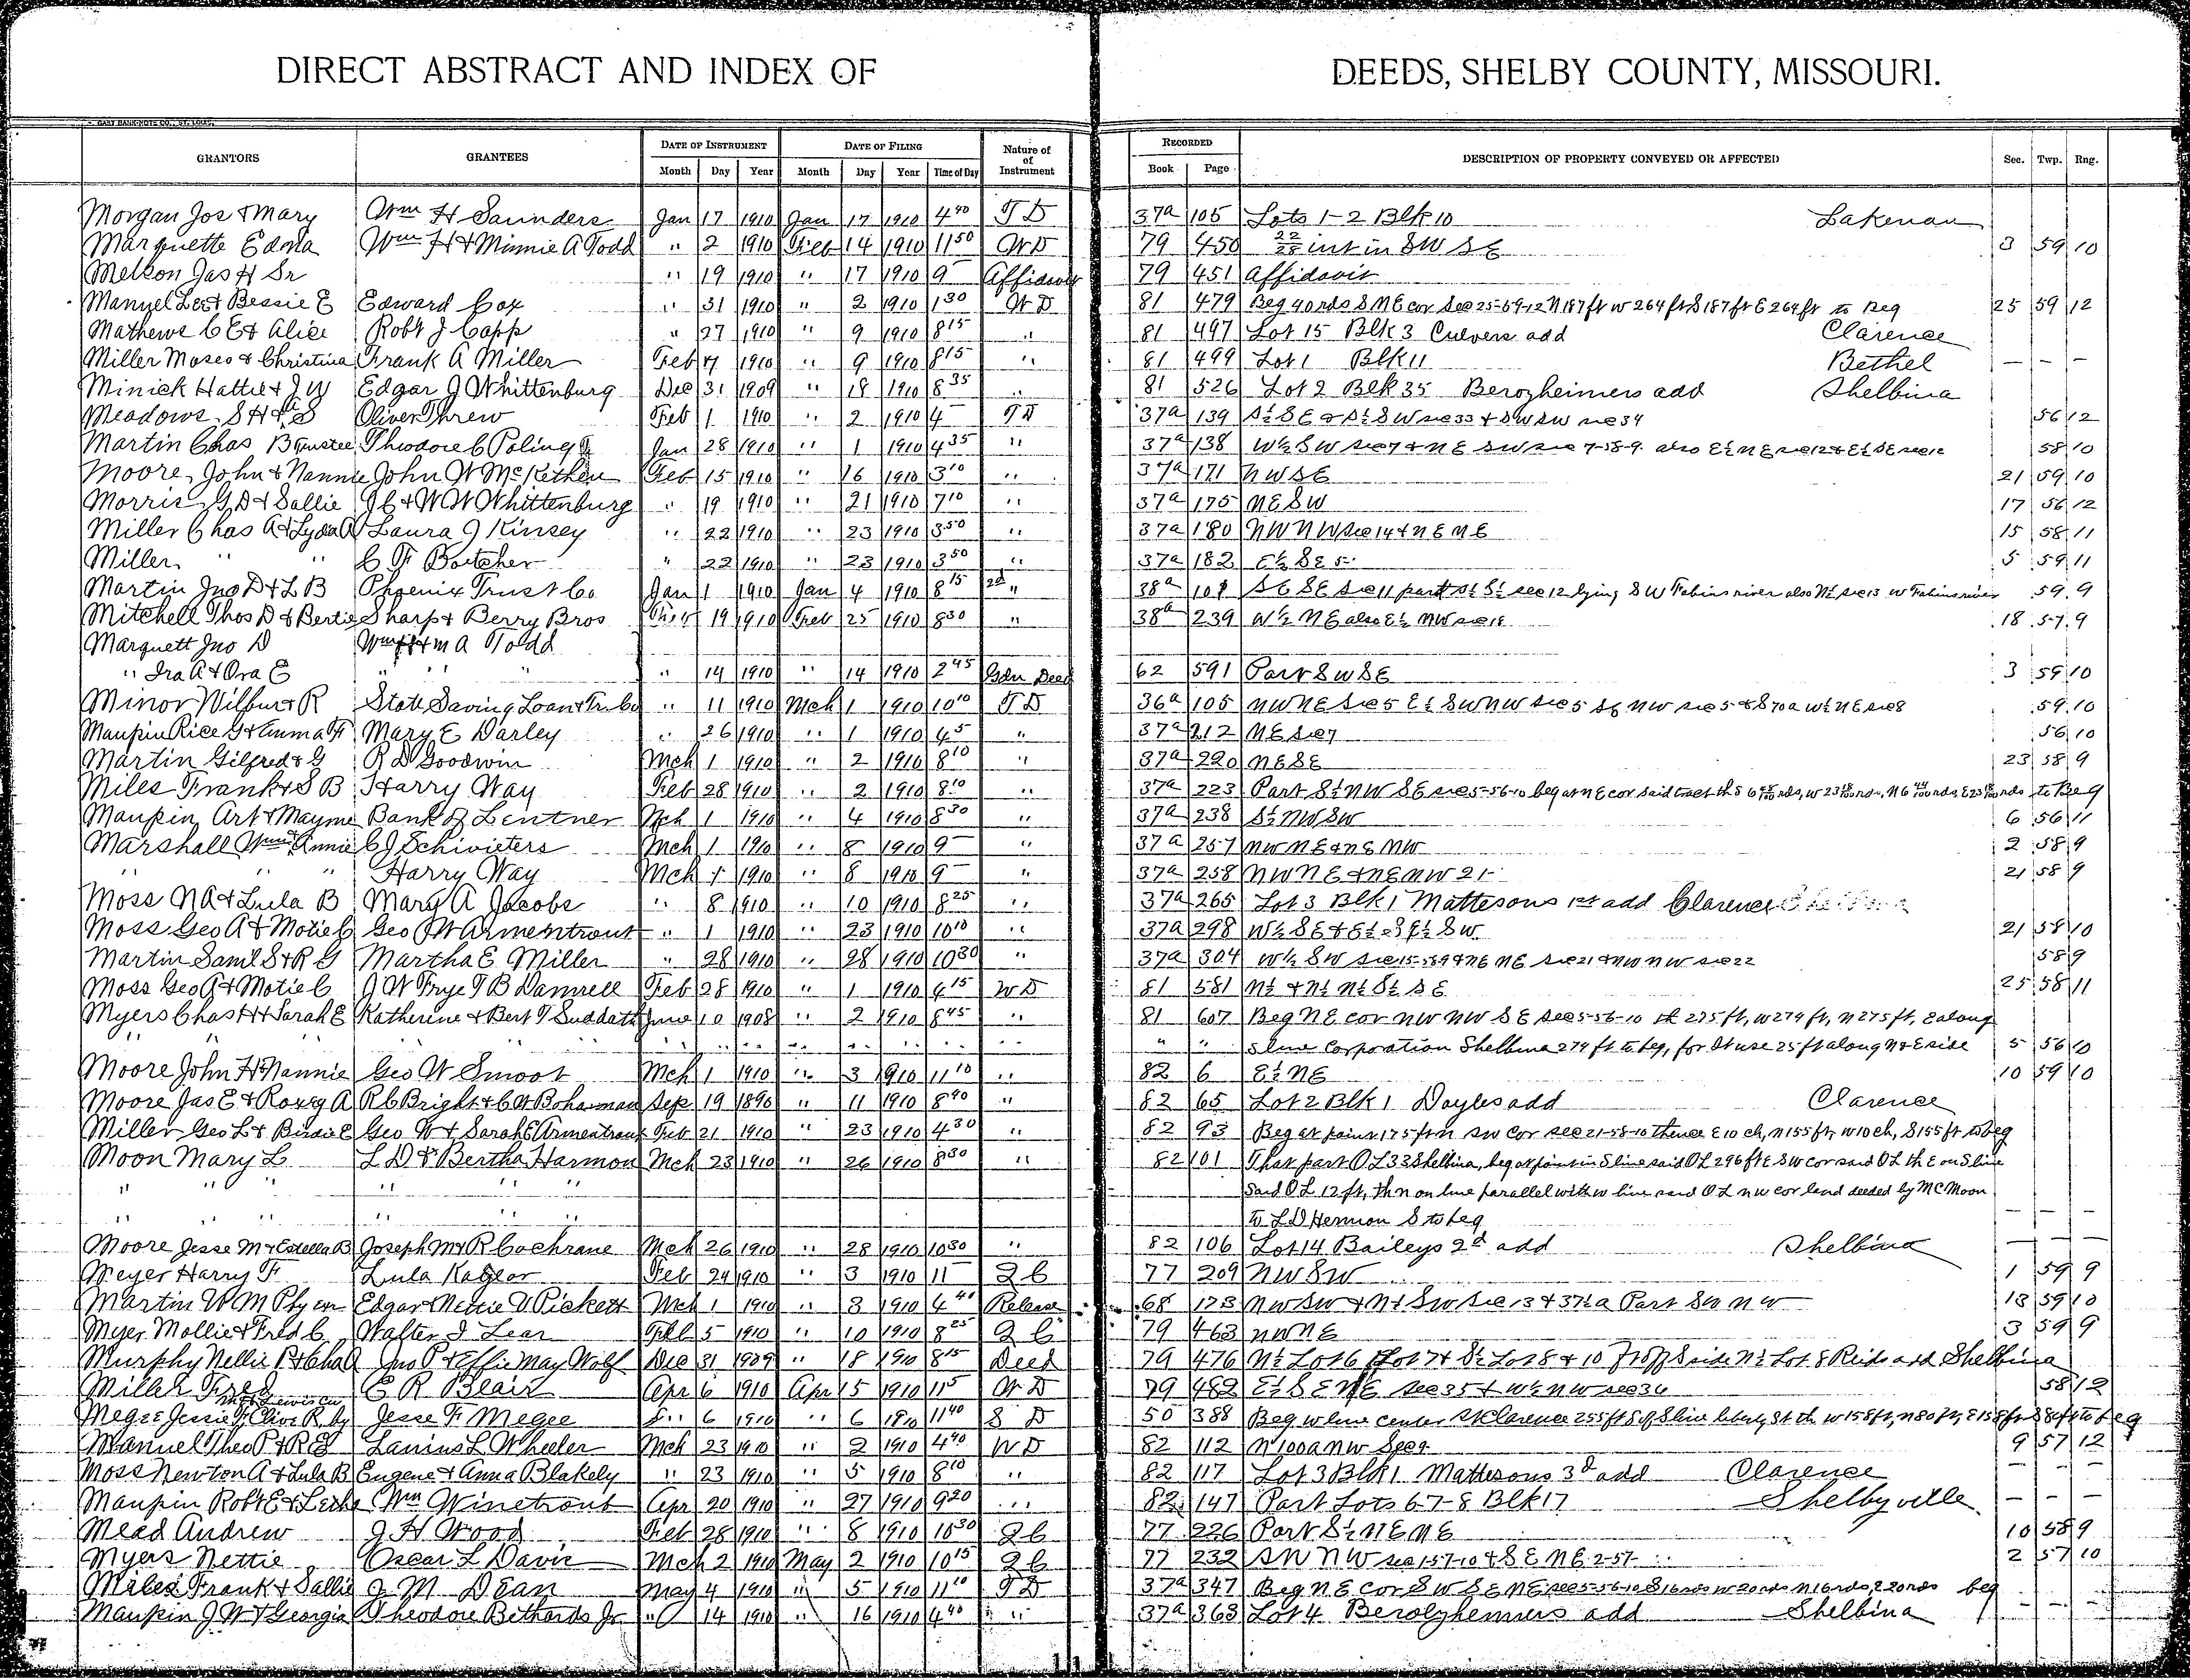 DIRECT ABSTRACT AND INDEX OF DEEDS, SHELBY COUNTY, MISSOURI.
GAST BANK-NOTE CO., ST. LOUIS.
GRANTORS GRANTEES DATE OF INSTRUMENT DATE OF FILING Nature of of Instrument RECORDED DESCRIPTION OF PROPERTY CONVEYED OR AFFECTED Sec. Twp. Rng.
Month Day Year Month Day Year Time of Day Book Page
Morgan Jos & Mary Wm H Saunders Jan 17 1910 Jan 17 1910 4 40 T D 37a 105 Lots 1-2 Blk 10 Lakenan
Marquette Edna Wm H & Minnie A Todd " 2 1910 Feb 14 1910 11 50 WD 79 450 22/28 int in SW SE 3 59 10
Melson Jas H Sr " 19 1910 " 17 1910 9 Affidavit 79 451 Affidavit
Manuel Lee & Bessie E Edward Cox " 31 1910 " 2 1910 1 30 WD 81 479 Beg 40 rds S NE cor Sec 25-59-12 N 187 ft W 264 ft S 187 ft E 264 ft to Beg 25 59 12
Mathews C E & Alice Robt J Capp " 27 1910 " 9 1910 8 15 " 81 497 Lot 15 Blk 3 Culvers add Clarence
Miller Moses & Christina Frank A Miller Feb 7 1910 " 9 1910 8 15 " 81 499 Lot 1 Blk 11 Bethel — —
Minick Hattie & J W Edgar J Whittenburg Dec 31 1909 " 18 1910 8 35 " 81 526 Lot 2 Blk 35 Berozheimers add Shelbina
Meadows S H & S Oliver Threw Feb 1 1910 " 2 1910 4 TD 37a 139 S½ SE & S½ SW sec 33 & SW SW sec 34 56 12
Martin Chas B Trustee Theodore C Poling Jan 28 1910 " 1 1910 4 35 " 37a 138 W½ SW sec 7 & NE SW sec 7-58-9 also E½ NE sec 12 & E½ SE sec 12 58 10
Moore John & Nannie John W McKethen Feb 15 1910 " 16 1910 3 10 " 37a 171 NW SE 21 59 10
Morris G D & Sallie J C & W W Whittenburg " 19 1910 " 21 1910 7 10 " 37a 175 NE SW 17 56 12
Miller Chas A & Lyda A Laura J Kinsey " 22 1910 " 23 1910 3 50 " 37a 180 NW NW sec 14 & NE NE 15 58 11
Miller " " C F Boetcher " 22 1910 " 23 1910 3 50 " 37a 182 E½ SE 5 5 59 11
Martin Jno D & L B Phoenix Trust Co Jan 1 1910 Jan 4 1910 8 15 2d " 38a 108 SE SE sec 11 part S½ S½ sec 12 lying SW Fabius river also N½ sec 13 W Fabius river 59 9
Mitchell Thos D & Bertie Sharp & Berry Bros Feb 19 1910 Feb 25 1910 8 30 " 38a 239 W½ NE also E½ NW sec 18 18 57 9
Marquett Jno D Wm H & M A Todd
" Ira A & Ora E " " " 14 1910 " 14 1910 2 45 Gdn Deed 62 591 Part SW SE 3 59 10
Minor Wilbur & R State Saving Loan & Tr Co " 11 1910 Mch 1 1910 10 10 TD 36a 105 NW NE sec 5 E½ SW NW sec 5 SE NW sec 5 & S 70 a W½ NE sec 8 59 10
Maupin Rice G & Emma F Mary E Darley " 26 1910 " 1 1910 4 5 " 37a 212 NE sec 7 56 10
Martin Gilfred & G R D Goodwin Mch 1 1910 " 2 1910 8 10 " 37a 220 NE SE 23 58 9
Miles Frank & S B Harry Way Feb 28 1910 " 2 1910 8 10 " 37a 223 Part S½ NW SE sec 5-56-10 beg at NE cor said tract th S 6 rds, W 23 rds, N 6 rds, E 23 rds to Beg
Maupin Art & Mayme Bank of Lentner Mch 1 1910 " 4 1910 8 30 " 37a 238 S½ NW SW 6 56 11
Marshall Wm & Annie C J Schivieters Mch 1 1910 " 8 1910 9 " 37a 257 NW NE & NE NW 2 58 9
" " " Harry Way Mch 1 1910 " 8 1910 9 " 37a 258 NW NE & NE NW 21 21 58 9
Moss N A & Lula B Mary A Jacobs " 8 1910 " 10 1910 8 25 " 37a 265 Lot 3 Blk 1 Mattesons 1st add Clarence
Moss Geo A & Motie C Geo W Armentrout " 1 1910 " 23 1910 10 10 " 37a 298 W½ SE & E½ SW 21 58 10
Martin Saml S & R G Martha E Miller " 28 1910 " 28 1910 10 30 " 37a 304 W½ SW sec 15-58-9 & NE NE sec 21 & NW NW sec 22 58 9
Moss Geo A & Motie C J W Frye T B Damrell Feb 28 1910 " 1 1910 4 15 WD 81 581 N½ & N½ N½ S½ SE 25 58 11
Myers Chas H & Sarah E Katherine & Bert T Suddath June 10 1908 " 2 1910 8 45 " 81 607 Beg NE cor NW NW SE sec 5-56-10 th 275 ft, W 279 ft, N 275 ft, E along
" " " " " " " " " " " " " " " " S line Corporation Shelbina 279 ft to beg, for St use 25 ft along N & E side 5 56 10
Moore John H & Nannie Geo W Smoot Mch 1 1910 " 3 1910 11 10 " 82 6 E½ NE 10 59 10
Moore Jas E & Roxey A R C Bright & C W Bohannan Sep 19 1896 " 11 1910 8 40 " 82 65 Lot 2 Blk 1 Doyles add Clarence
Miller Geo L & Birdie E Geo W & Sarah E Armentrout Feb 21 1910 " 23 1910 4 30 " 82 93 Beg at point 175 ft N SW cor sec 21-58-10 thence E 10 ch, N 155 ft, W 10 ch, S 155 ft to beg
Moon Mary L L D & Bertha Harmon Mch 23 1910 " 26 1910 8 30 " 82 101 That part OL 33 Shelbina, beg at point in S line said OL 296 ft E SW cor said OL th E on S line
" " " " " " Said OL 12 ft, th N on line parallel with W line said OL NW cor land deeded by M C Moon
" " " " " " To L D Hermon S to beg — —
Moore Jesse M & Estella B Joseph M & R Cochrane Mch 26 1910 " 28 1910 10 30 " 82 106 Lot 14 Baileys 2d add Shelbina — —
Meyer Harry F Lula Kaylor Feb 24 1910 " 3 1910 11 Q C 77 209 NW SW 1 59 9
Martin W M Edgar & Nettie V Pickett Mch 1 1910 " 3 1910 4 40 Release 68 173 NW SW & N½ SW sec 13 & 37½ a Part SW NW 13 59 10
Myer Mollie & Fred C Walter I Lear Feb 5 1910 " 10 1910 8 25 Q C 79 463 NW NE 3 59 9
Murphy Nellie P & Chas Jno P & Effie May Wolf Dec 31 1909 " 18 1910 8 15 Deed 79 476 N½ Lot 6 Lot 7 & S½ Lot 8 & 10 ft off S side N½ Lot 8 Reids add Shelbina
Miller Fred E R Blair Apr 6 1910 Apr 5 1910 11 5 WD 79 482 E½ SE NE sec 35 & W½ NW sec 36 58 12
Megee Jessie F, Clive R, by Jesse F Megee " 6 1910 " 6 1910 11 40 S D 50 388 Beg W line center St Clarence 255 ft S of S line liberty St th W 158 ft, N 80 ft, E 158 ft S 80 ft to beg
Manuel Theo P & R E Lanius L Wheeler Mch 23 1910 " 2 1910 4 40 WD 82 112 N 100 a NW Sec 9 9 57 12
Moss Newton A & Lula B Eugene & Anna Blakely " 23 1910 " 5 1910 8 10 " 82 117 Lot 3 Blk 1 Mattesons 3d add Clarence — —
Maupin Robt E & Leska Wm Winetrout Apr 20 1910 " 27 1910 9 20 " 82 147 Part Lots 6-7-8 Blk 17 Shelbyville — — —
Mead Andrew J H Wood Feb 28 1910 " 8 1910 10 30 Q C 77 226 Part S½ NE NE 10 58 9
Myers Nettie Oscar L Davis Mch 2 1910 May 2 1910 10 15 Q C 77 232 SW NW sec 1-57-10 & SE NE 2-57- 2 57 10
Miles Frank & Sallie J M Dean May 4 1910 " 5 1910 11 10 TD 37a 347 Beg NE cor SW SE NE sec 5-56-10 S 16 rds W 20 rds N 16 rds, E 20 rds beg — —
Maupin J W & Georgia Theodore Bethards Jr " 14 1910 " 16 1910 4 40 " 37a 363 Lot 4 Berolzheimers add Shelbina — —